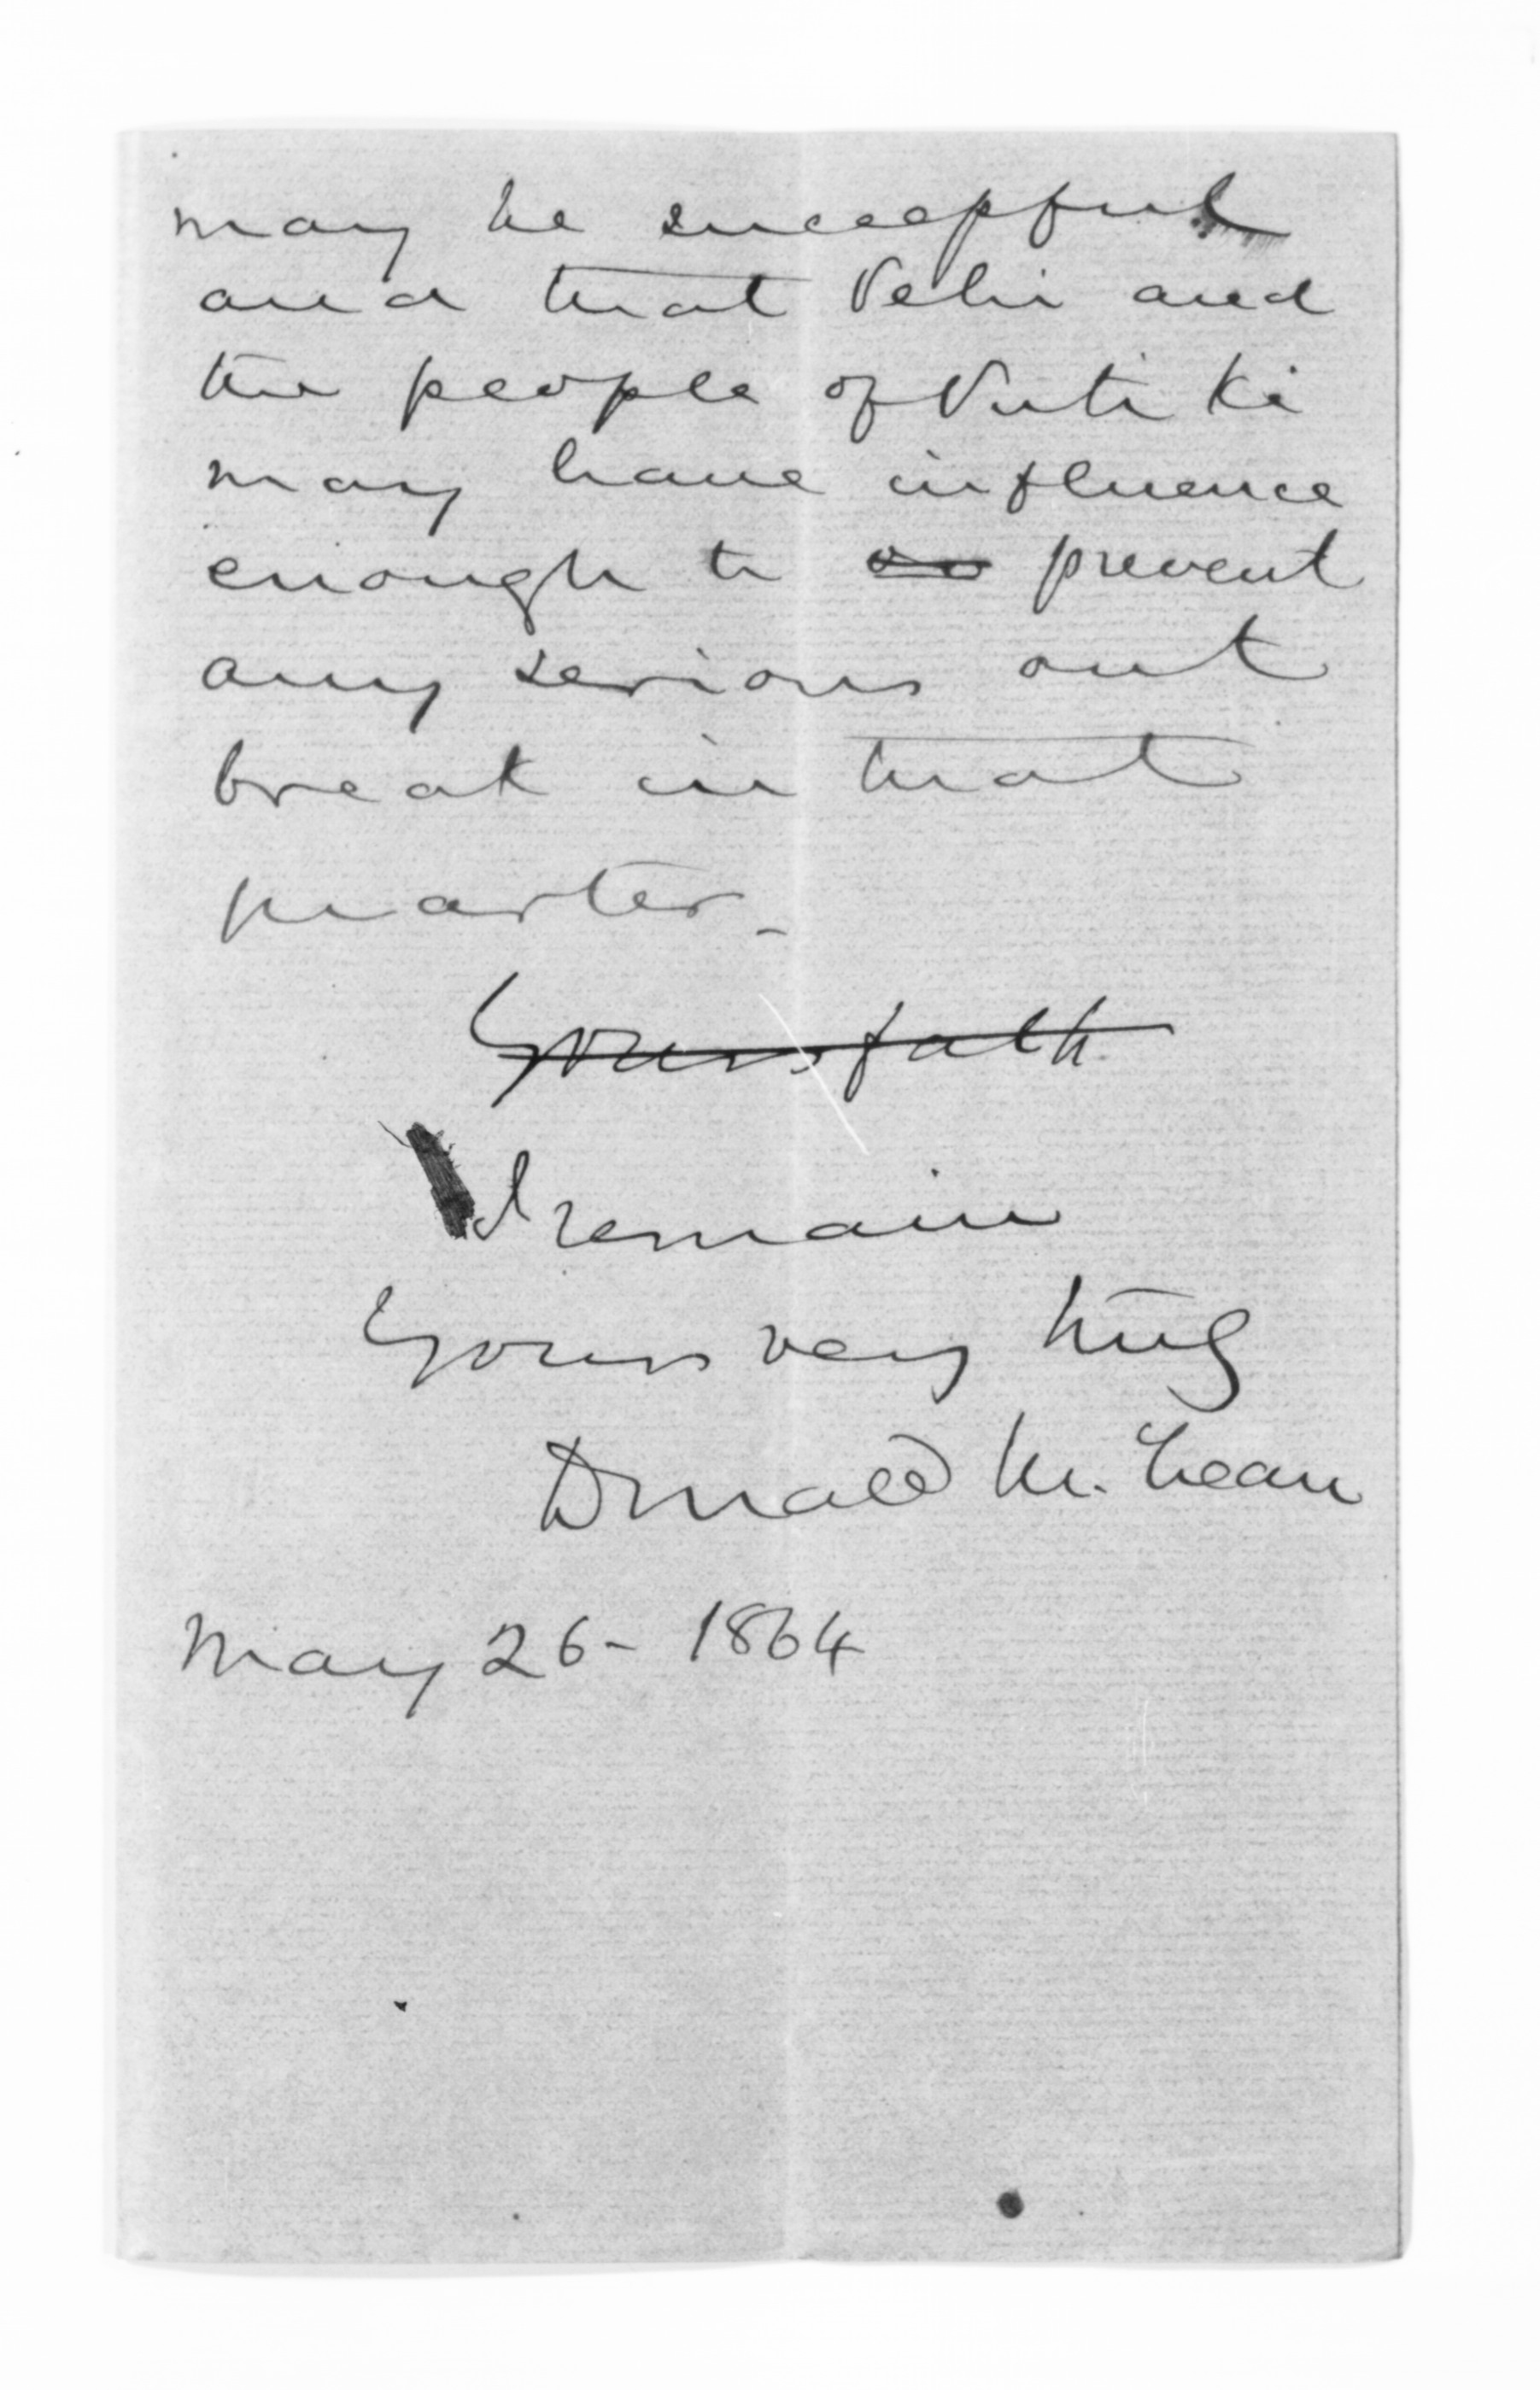 may be successful
and that Pehi and
the people of Puti Ki
may have influence
enough to prevent
any serious out
break in that
quarter_
Yours faith
I remain
Yours very truly
Donald McLean
May 26 - 1864